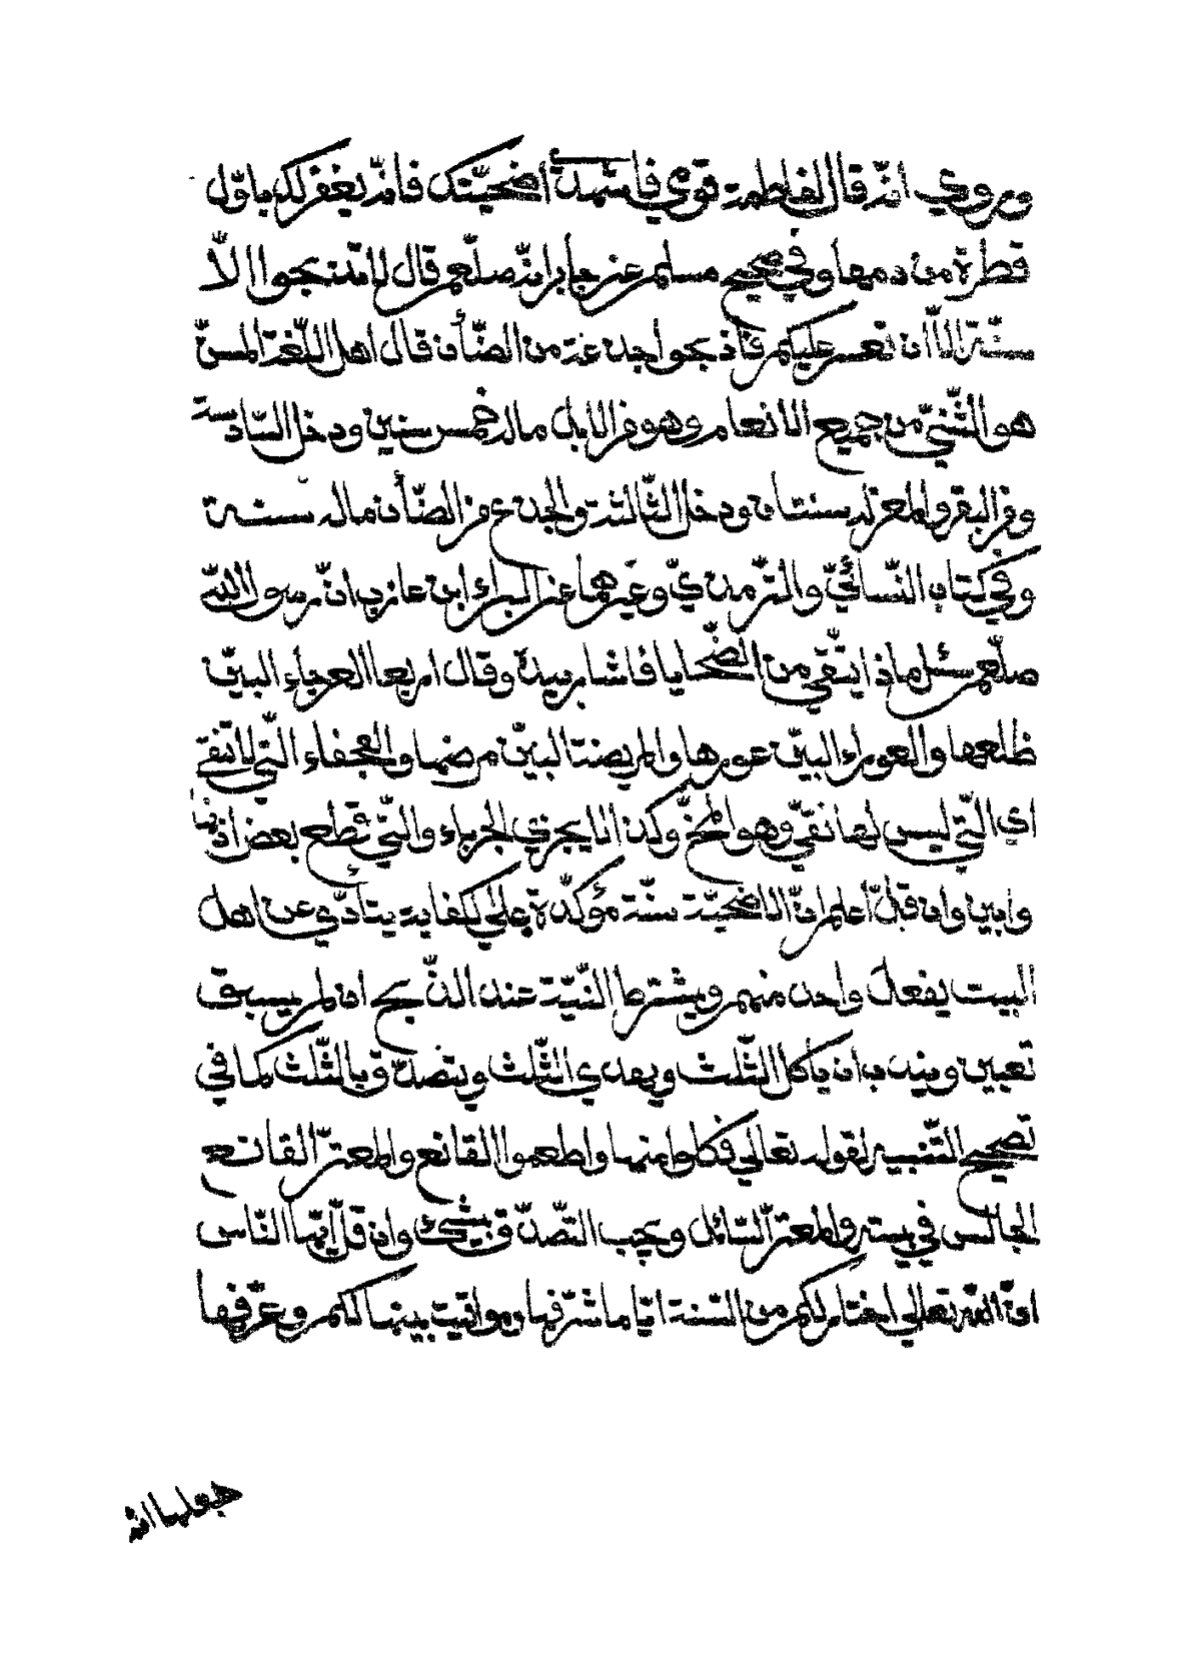 وروي انّه قال لفاطمة قومي فاشهدي أضحيّتك فانّه يغفر لك باوّل
قطرة من دمها وفي صحيح مسلم عن جابر انّه صلّعم قال لا تذبحوا الّا
مسنّة الّا ان تعسر عليكم فاذبحوا جذعة من الضّأن قال اهل اللّغة المسنّ
هو الثّنيّ من جميع الانعام وهو من الابل ماله خمس سنين ودخل السّادسة
ومن البقر والمعز له سنتان ودخل الثّالثة والجذع من الضّأن ماله سنة
وفي كتاب النّسائيّ والتّرمذيّ وغيرهما عن البراء ابن عازب انّ رسول اللّه
صلّعم سئل ماذا يتّقي من الضّحايا فاشار بيده وقال اربعا العرجاء البيّن
ظلعها والعوراء البيّن عورها والمريضة البيّن مرضها والعجفاء الّتي لا تنقي
اي الّتي ليس لها نقيّ وهو المخّ وكذا لا يجزي الجرباء والتي قطع بعض اذنها
وابين وان قلّ أعلم انّ الاضحيّة سنّة مؤكّدة علي كفاية يتأدّي عن اهل
البيت بفعل واحد منهم ويشترط النيّة عند الذّبح ان لم يسبق
تعيين ويندب ان ياكل الثّلث ويهدي الثّلث ويتصدّق بالثّلث كما في
تصحيح التّنبيه لقوله تعالي فكلوا منها واطعموا القانع والمعترّ القانع
الجالس في بيته والمعترّ السّائل ويجب التّصدّق بشيء وان قلّ ايّها النّاس
انّ اللّه تعالي اختار لكم من السّنة ايّاما شرّفها ومواقيت بينها لكم وعرّفها
جعلها الله